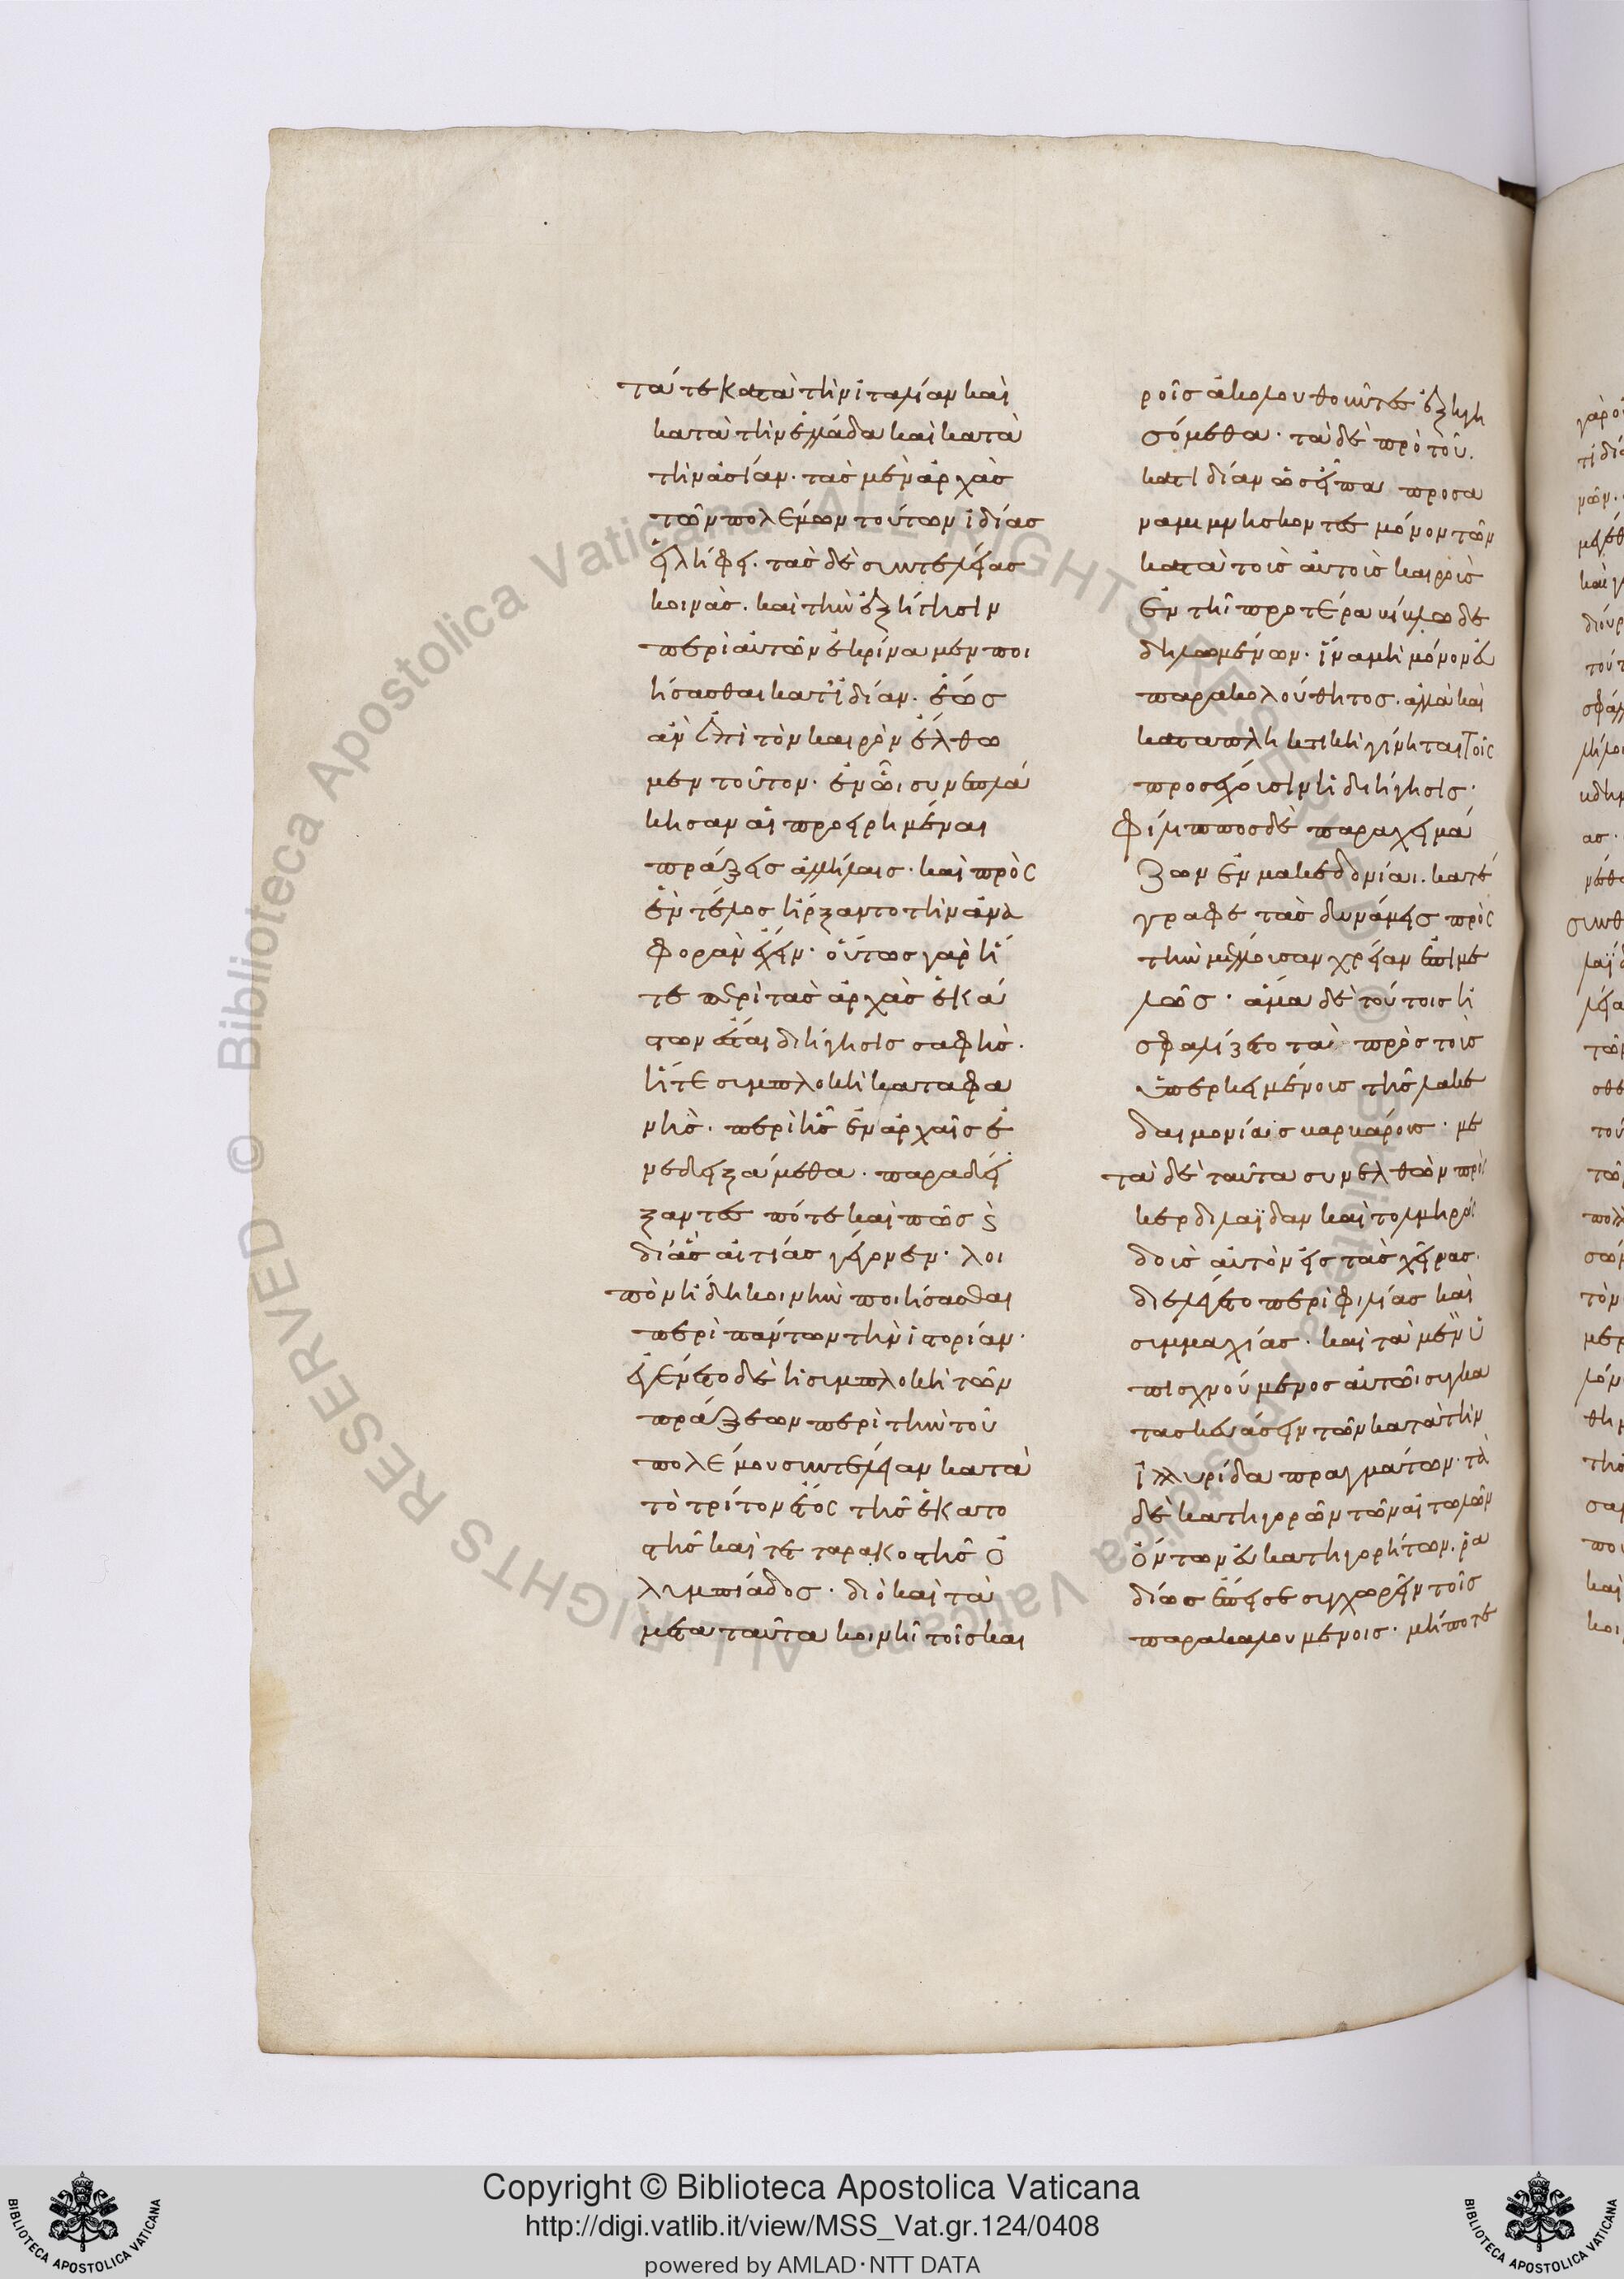 τά τε κατὰ τὴν ἰταλίαν καὶ
κατὰ τὴν ἑλλάδα καὶ κατὰ
τὴν ἀσίαν. τὰς μὲν ἀρχὰς
τῶν πολέμων τούτων ἰδίας
εἰλήφει. τὰς δὲ συντελείας
κοινάς. καὶ τὴν ἐξήγησιν
περὶ αὐτῶν ἐκρίναμεν ποι
ήσασθαι κατ ἰδίαν. ἕως
ἂν ἐπὶ τὸν καιρὸν ἔλθω
μεν τοῦτον. ἐν ὧι συνεπλά
κησαν αἱ προειρημέναι
πράξεις ἀλλήλαις. καὶ πρὸς
ἓν τέλος ἤρξαντο τὴν ἀνα
φορὰν ἔχειν. οὕτως γὰρ ἥ
τε περὶ τὰς ἀρχὰς ἑκά
στων ἔσται διήγησις σαφής.
ἥ τε συμπλοκὴ καταφα
νής. περὶ ἧς ἐν ἀρχαῖς ἐ
νεδειξάμεθα. παραδεί
ξαντες πότε καὶ πῶς καὶ
δι ἃς αἰτίας γέγονεν. λοι
πὸν ἤδη κοινὴν ποιήσασθαι
περὶ πάντων τὴν ἱστορίαν.
ἐγένετο δὲ ἡ συμπλοκὴ τῶν
πράξεων περὶ τὴν τοῦ
πολέμου συντέλειαν κατὰ
τὸ τρίτον ἔτος τῆς ἑκατο
στῆς καὶ τετταρακοστῆς ὀ
λυμπιάδος. διὸ καὶ τὰ
μετὰ ταῦτα κοινῆ τοῖς και
ροῖς ἀκολουθοῦντες ἐξηγη
σόμεθα. τὰ δὲ πρὸ τοῦ.
κατ ἰδίαν ὡς εἶπα προσα
ναμιμνήσκοντες μόνον τῶν
κατὰ τοὺς αὐτοὺς καιροὺς
ἐν τῆ προτέρα βίβλω δε
δηλωμένων. ἵνα μὴ μόνον εὐ
παρακολούθητος. ἀλλὰ καὶ
καταπληκτικὴ γίνηται τοῖς
προσέχουσιν ἡ διήγησις.
Φίλιππος δὲ παραχειμά
ζων ἐν μακεδονίαι. κατέ
γραφε τὰς δυνάμεις πρὸς
τὴν μέλλουσαν χρείαν ἐπιμε
λῶς. ἅμα δὲ τούτοις ἠ
σφαλίζετο τὰ πρὸς τοὺς
ὑπερκειμένους τῆς μακε
δονίας βαρβάρους. με
τὰ δὲ ταῦτα συνελθὼν πρὸς
σκερδιλαΐδαν καὶ τολμηρῶς
δοὺς αὑτὸν εἰς τὰς χεῖρας.
διελέγετο περὶ φιλίας καὶ
συμμαχίας. καὶ τὰ μὲν ὑ
πισχνούμενος αὐτῶι συγκα
τασκευάσειν τῶν κατὰ τὴν
ἰλλυρίδα πραγμάτων. τὰ
δὲ κατηγορῶν τῶν αἰτωλῶν
ὄντων εὐκατηγορήτων. ῥα
δίως ἔπεισε συγχωρεῖν τοῖς
παρακαλουμένοις. μήποτε
Copyright © Biblioteca Apostolica Vaticana
http://digi.vatlib.it/view/MSS_Vat.gr.124/0408
powered by AMLAD·NTT DATA